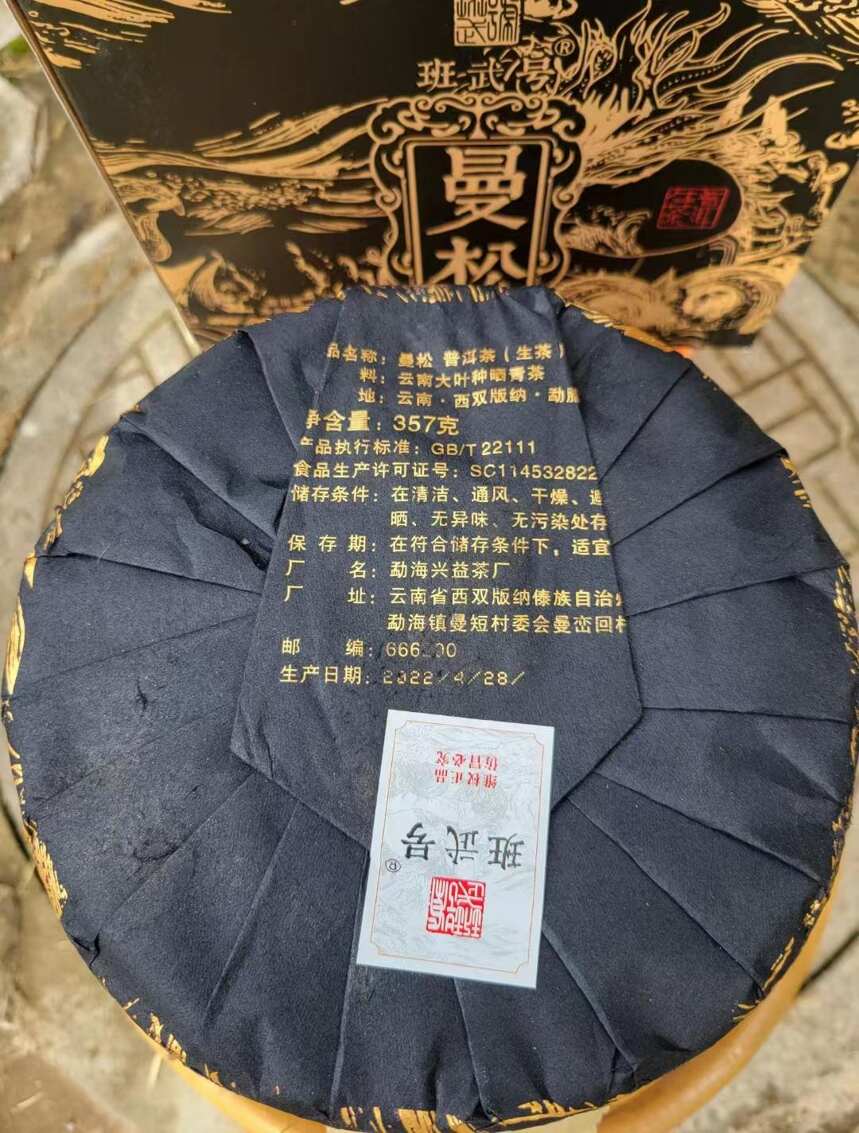 班武号®
曼松
品名称：曼松 普洱茶（生茶）
料：云南大叶种晒青茶
地：云南·西双版纳·勐腊
净含量：357克
产品执行标准：GB/T 22111
食品生产许可证号：SC114532822
储存条件：在清洁、通风、干燥、避
晒、无异味、无污染处存
保存期：在符合储存条件下，适宜
厂名：勐海兴益茶厂
厂址：云南省西双版纳傣族自治州
勐海镇曼短村委会曼峦回村
邮编：666200
生产日期：2022/4/28/
班武号®
维权正品
仿冒必究